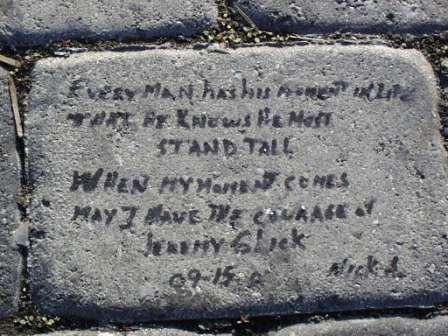 EVERY MAN has his MOMENT in LIFE
THAT HE KNOWS HE MUST
STAND TALL
WHEN MY MOMENT COMES
MAY I HAVE THE COURAGE of
JEREMY GLICK
09-15-
NICK